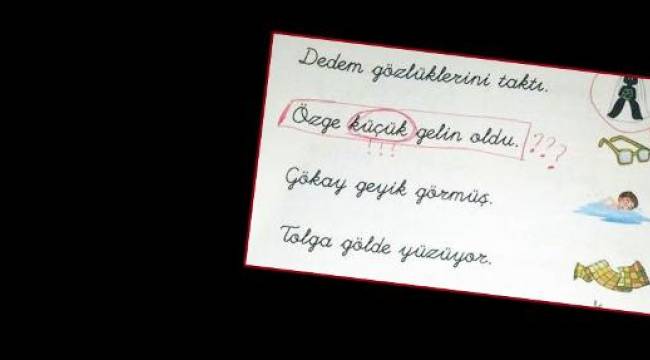 Dedem gözlüklerini taktı.
Özge küçük gelin oldu. ???
!!!
Gökay geyik görmüş.
Tolga gölde yüzüyor.